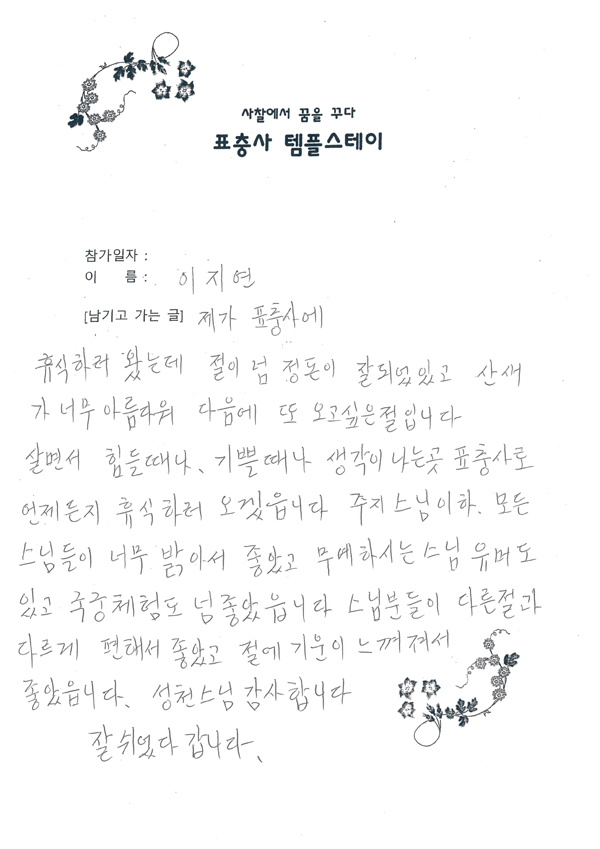 사찰에서 꿈을 꾸다
표충사 템플스테이
참가일자 :
이 름 : 이지연
[남기고 가는 글] 제가 표충사에
휴식하러 왔는데 절이 넘 정돈이 잘되었있고 산새
가 너무 아름다워 다음에 또 오고싶은절입니다
살면서 힘들때나、기쁠때나 생각이 나는곳 표충사로
언제든지 휴식하러 오겠읍니다 주지스님이하. 모든
스님들이 너무 밝아서 좋았고 무예하시는스님 유머도
있고 국궁체험도 넘좋았읍니다 스님분들이 다른절과
다르게 편해서 좋았고 절에 기운이 느껴져서
좋았읍니다、 성천스님 감사합니다
잘 쉬었다 갑니다、